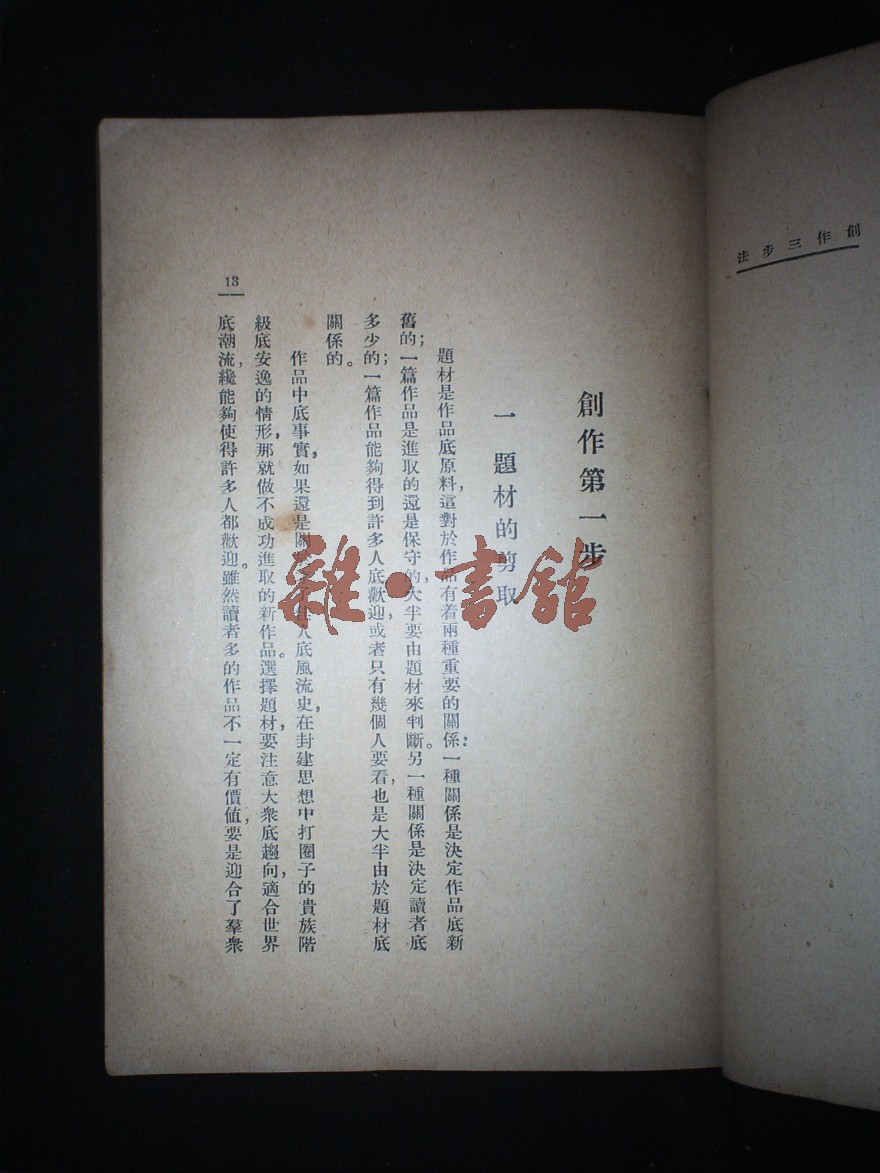 創作三步法
創作第一步
一 題材的剪取
題材是作品底原料，這對於作品有着兩種重要的關係：一種關係是決定作品底新
舊的；一篇作品是進取的還是保守的，大半要由題材來判斷。另一種關係是決定讀者底
多少的；一篇作品能夠得到許多人底歡迎，或者只有幾個人要看，也是大半由於題材底
關係的。
作品中底事實，如果還是關人底風流史，在封建思想中打圈子的貴族階
級底安逸的情形，那就做不成功進取的新作品。選擇題材，要注意大衆底趨向，適合世界
底潮流，纔能夠使得許多人都歡迎。雖然讀者多的作品不一定有價値，要是迎合了羣衆
13
雜·書館